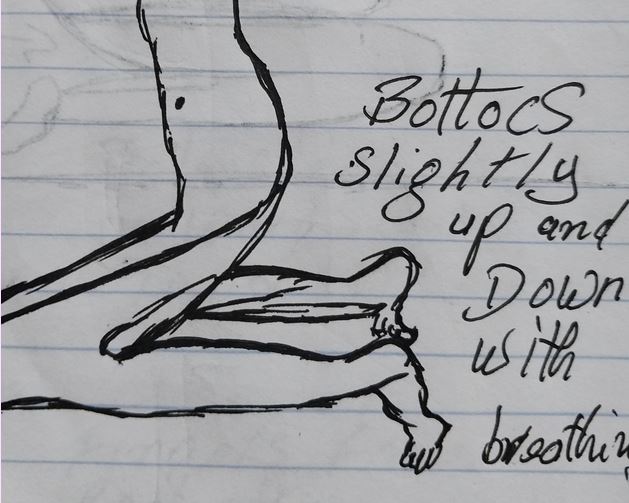 Bottocs
slightly
up and
Down
with
breathin